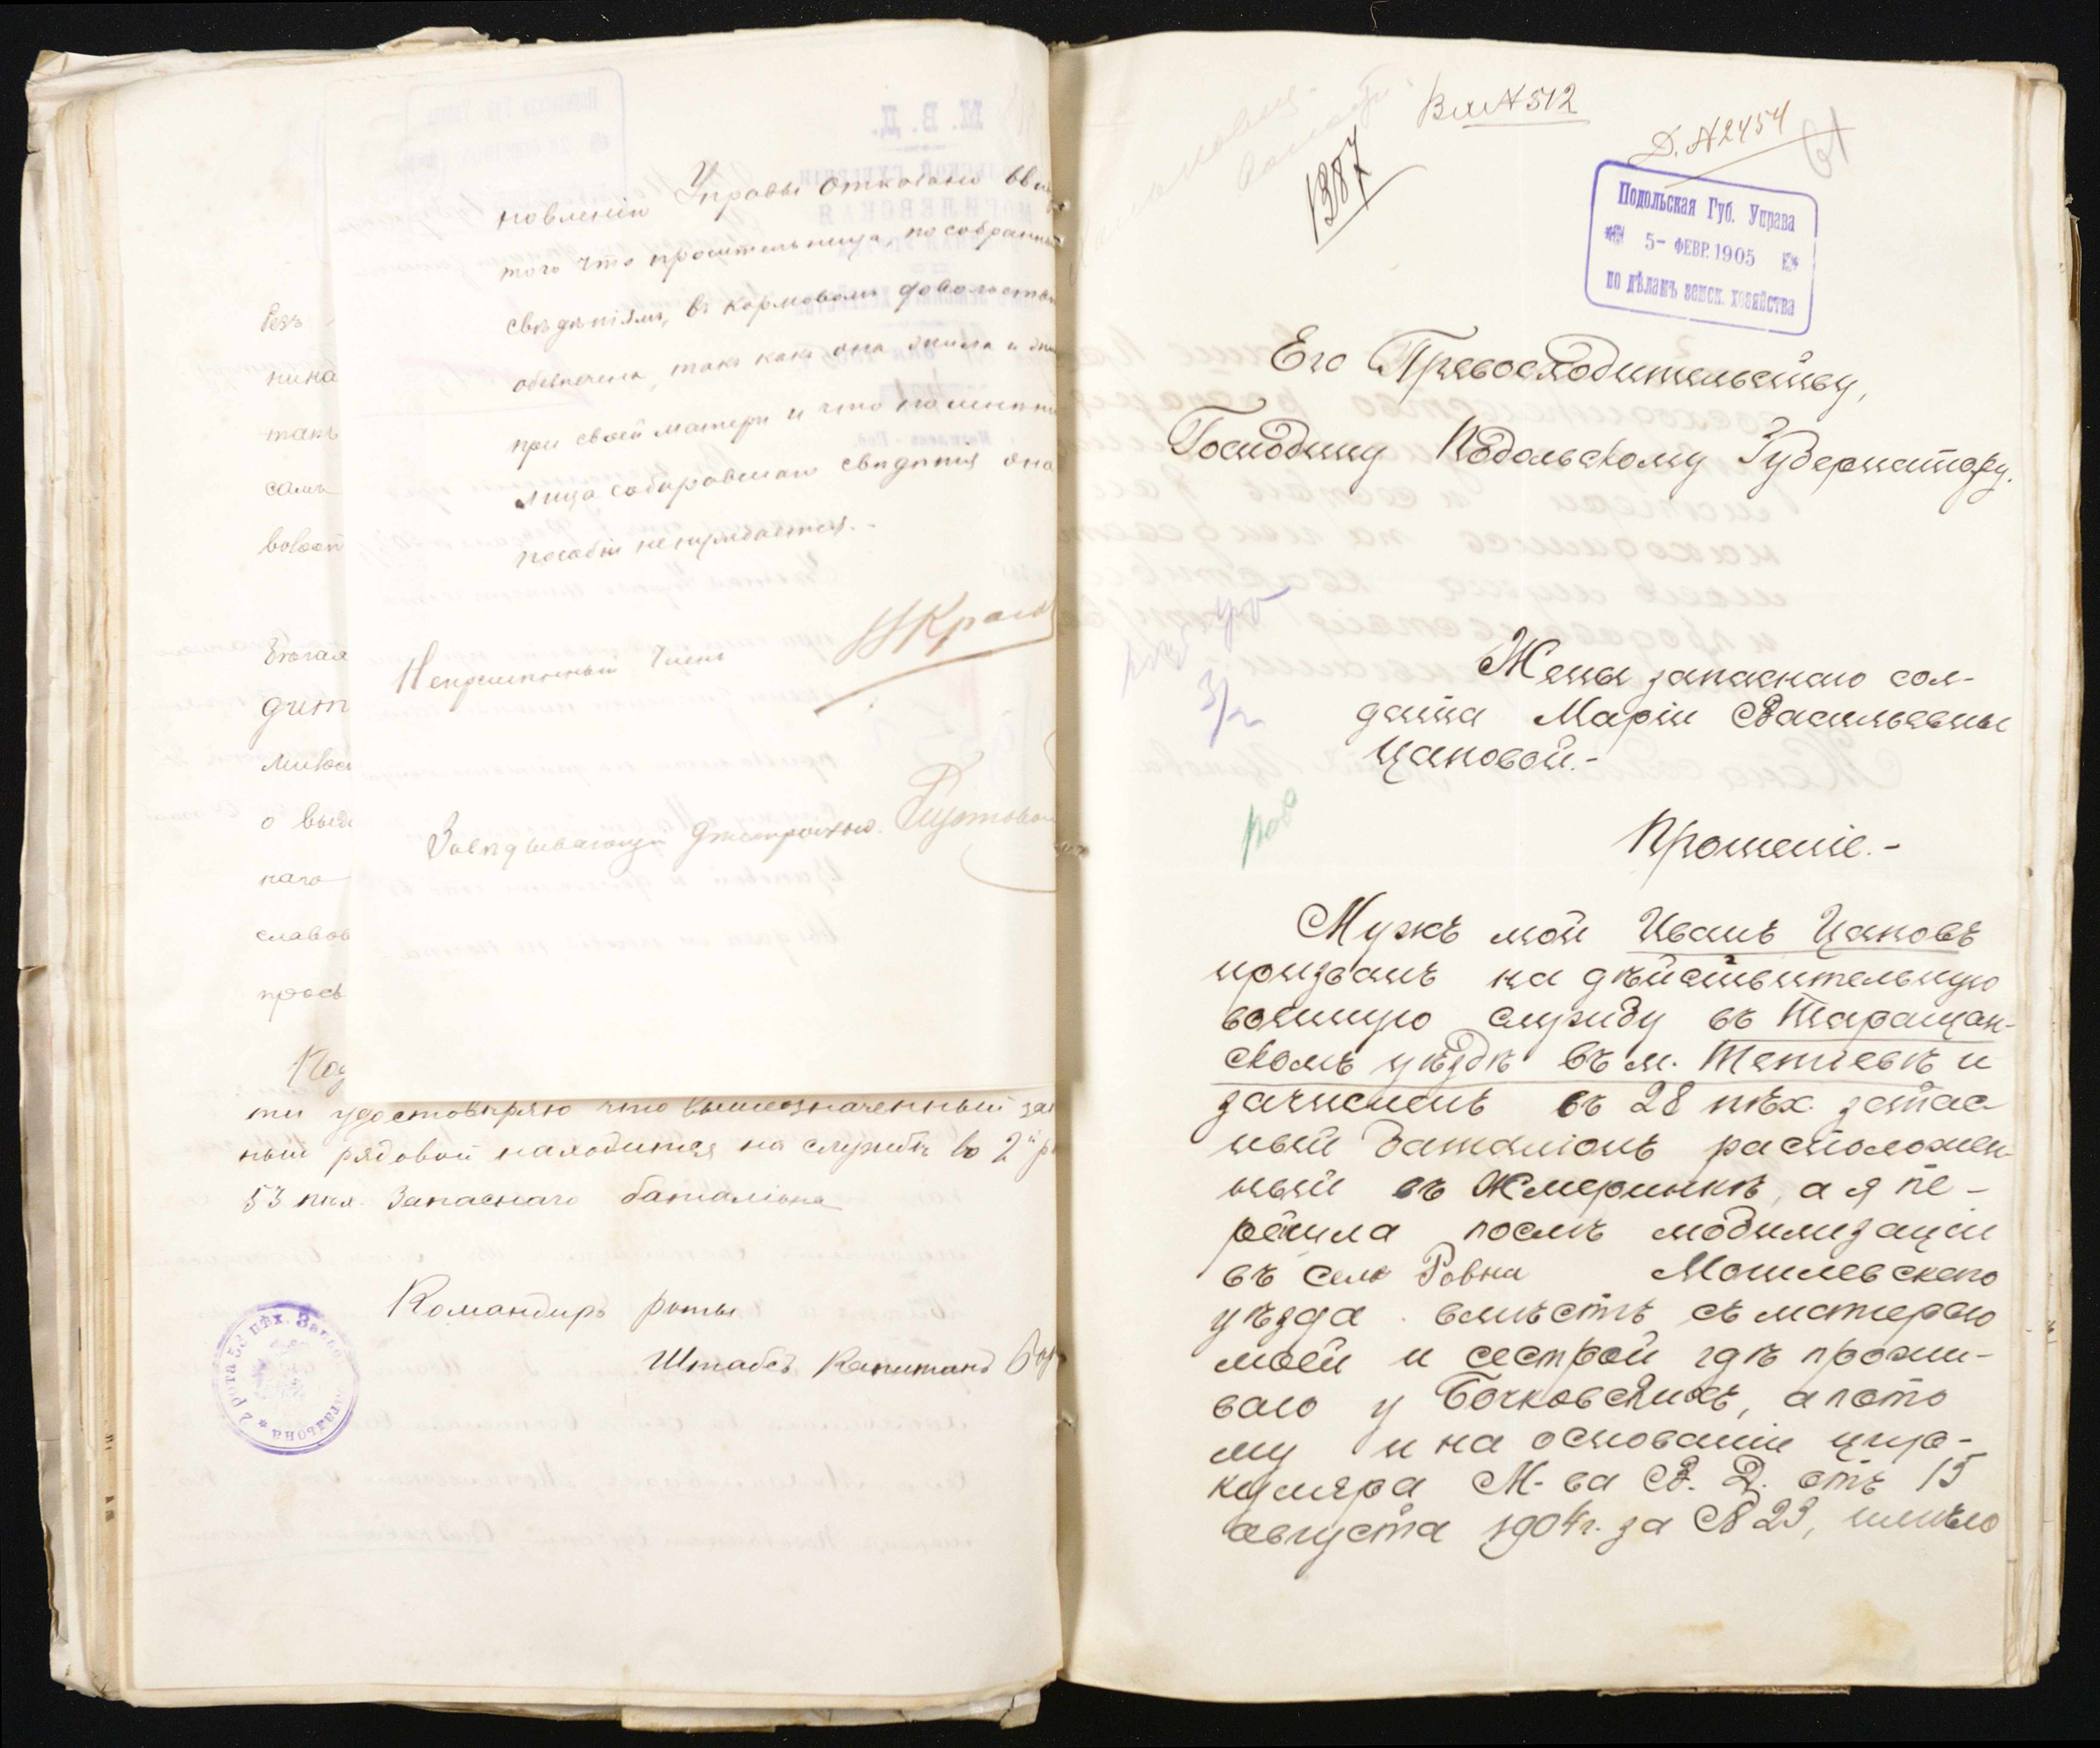 новленію Управы отказано вви
того что просительница, по собранным
свѣдѣніямъ, въ кормовомъ довольств
обезпечена, такъ какъ она жила и
при своей матери и что по мнѣнію
лица собиравшаго свѣдѣнія она
пособіи не нуждается.-
Непремѣнный Членъ
Завѣдывающій
нина
такъ
самъ
дит
о выд
наго
славов
прось
ти удостовѣряю что вышеозначенный зап
ный рядовой находится на службѣ во 2й р
53 пѣх. Запаснаго баталіона
Командиръ роты
Штабсъ Капитанъ
Вх №512
Д. №2454
1387
61
Подольская Губ. Управа
5- ФЕВР. 1905
по дѣламъ земск. хозяйства
Его Превосходительству,
Господину Подольскому Губернатору.
Жены запаснаго сол-
дата Маріи Васильевны
Цановой.-
Прошеніе.-
Мужъ мой Иванъ Цановъ
призванъ на дѣйствительную
военную службу въ Таращан-
скомъ уѣздѣ въ м. Тетіевѣ и
зачисленъ въ 28 пѣх. запас-
ный баталіонъ расположен-
ный въ Жмеринкѣ, а я пе-
решла послѣ мобилизаціи
въ село Ровна Могилевскаго
уѣзда вмѣстѣ съ матерью
моей и сестрой гдѣ прожи-
ваю у Бочковскихъ, а пото
му и на основаніи цир-
куляра М-ва В. Д. отъ 15
августа 1904г. за №23, имѣю